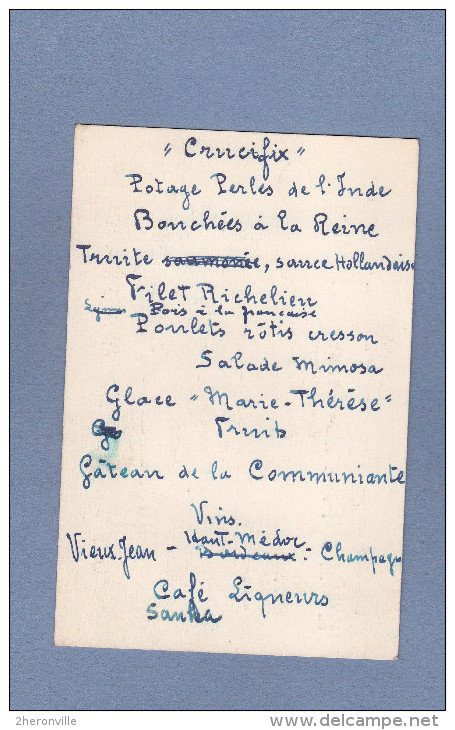 " Crucifix "
Potage Perles de l'Inde
Bouchées à la Reine
Truite saumonée, sauce Hollandaise
Filet Richelieu
Pois à la française
Poulets rôtis cresson
Salade Mimosa
Glace " Marie-Thérèse "
Fruits
Gâteau de la Communiante
Vins.
Haut-Médoc
Vieux Jean - Bordeaux - Champagne
Café Liqueurs
Sanka
2heronville
www.delcampe.net